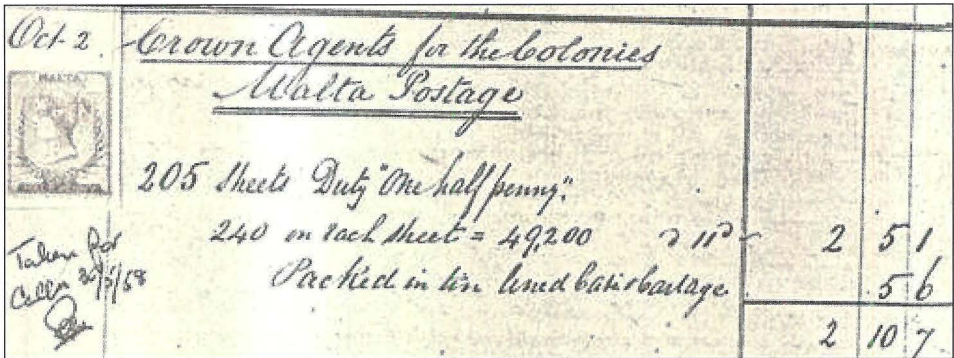 Oct 2 Crown Agents for the Colonies
MALTA
Malta Postage
205 Sheets Duty "One half penny".
240 on each sheet = 49,200 11d 2 5 1
Packed in tin lined case & cartage 5 6
2 10 7
Taken for
30/5/58